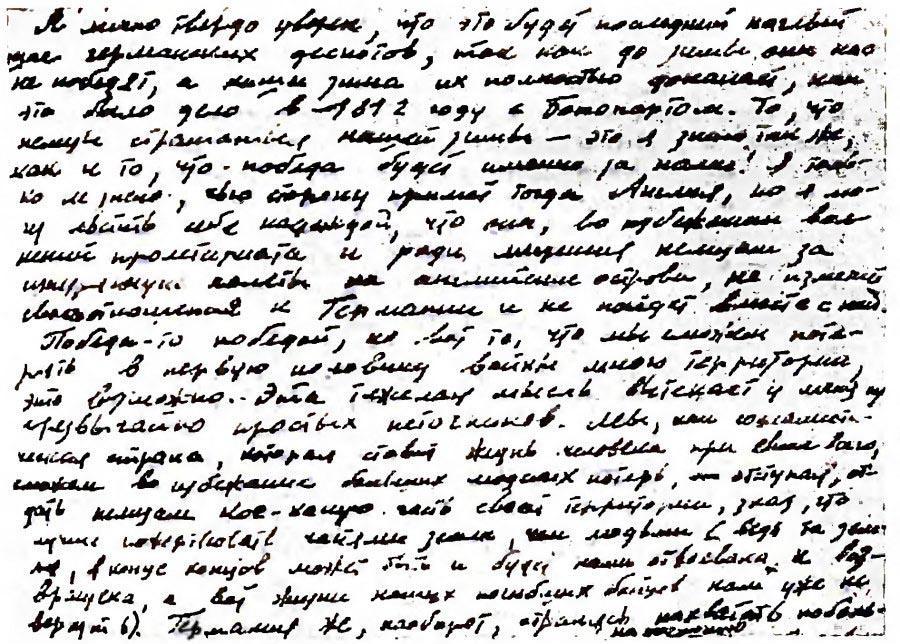 Я лично твердо уверен, что это будет последний наглый
шаг германских деспотов, так как до зимы они нас
не победят, а наша зима их полностью доканает, как
это было дело в 1812 году с Бонопартом. То, что
немцы страшатся нашей зимы — это я знаю так же,
как и то, что победа будет именно за нами! Я толь-
ко не знаю, чью сторону примет тогда Англия, но я мо-
гу льстить себе надеждой, что она, во избежании вол-
нений пролетариата и ради мщения немцам за
налеты на английские острова, не изменит
своего отношения к Германии и не пойдет вместе с ней.
Победа-то победой, но вот то, что мы сможем поте-
рять в первую половину войны много территории,
это возможно. Эта тяжелая мысль вытекает у меня из
чрезвычайно простых источников. Мы, как социалисти-
ческая страна, которая ставит жизнь человека при выше всего,
сможем во избежание больших людских потерь, отступая, от-
дать немцам кое-какую часть своей территории, зная, что
лучше пожертвовать частями земли, чем людьми (ведь та зем-
ля, в конце концов может быть и будет нами отвоевана и воз-
вращена, а вот жизни наших погибших бойцов нам уже не
вернуть). Германия же, наоборот, стремясь нахватать поболь-